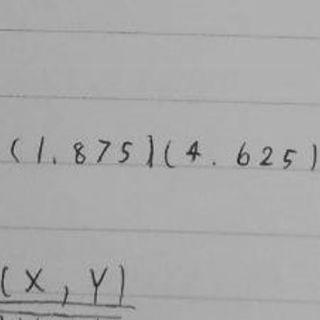 (1.875)(4.625)
(X, Y)